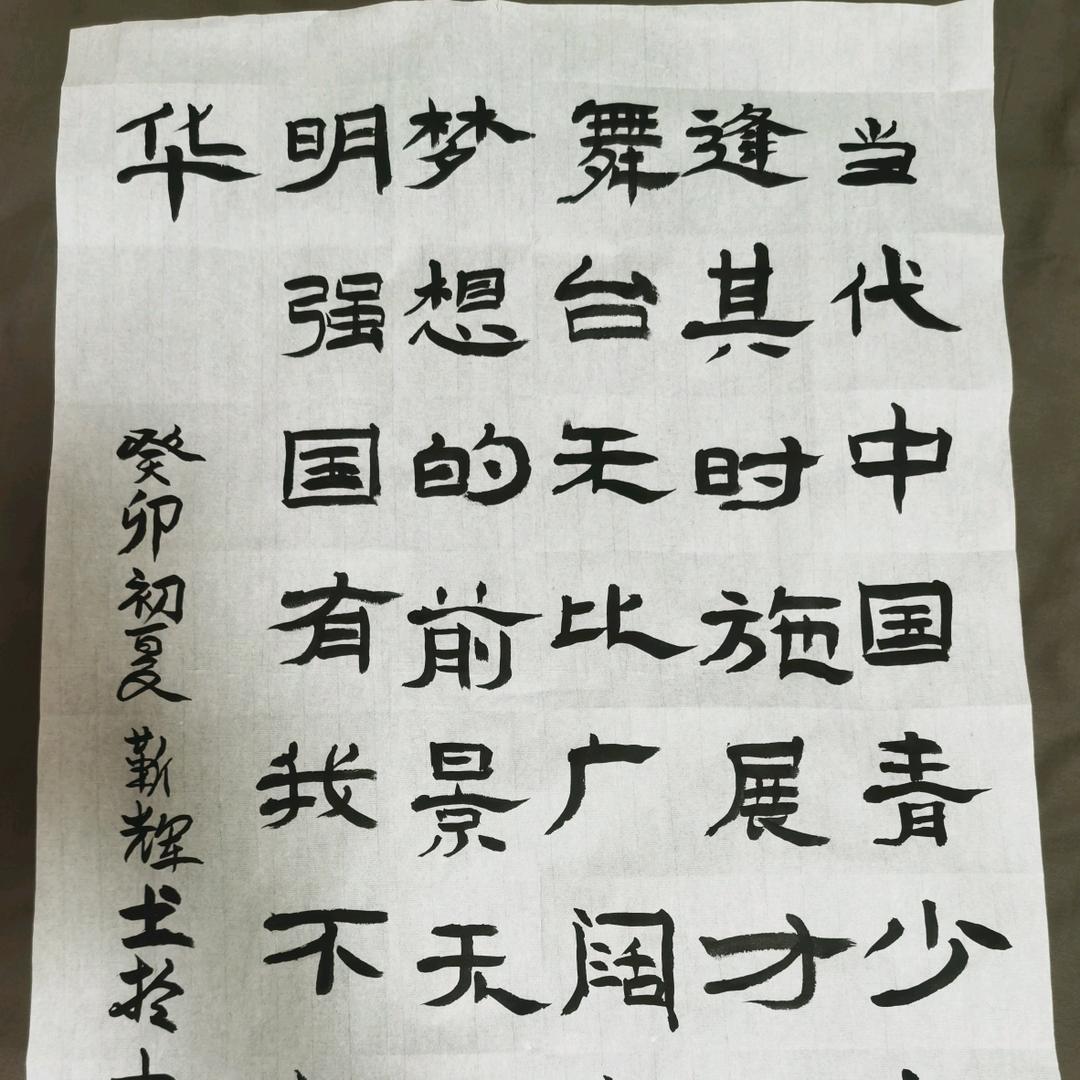 当代中国青少
逢其时施展才
舞台无比广阔
梦想的前景无
明强国有我不
华
癸卯初夏靳辉书于